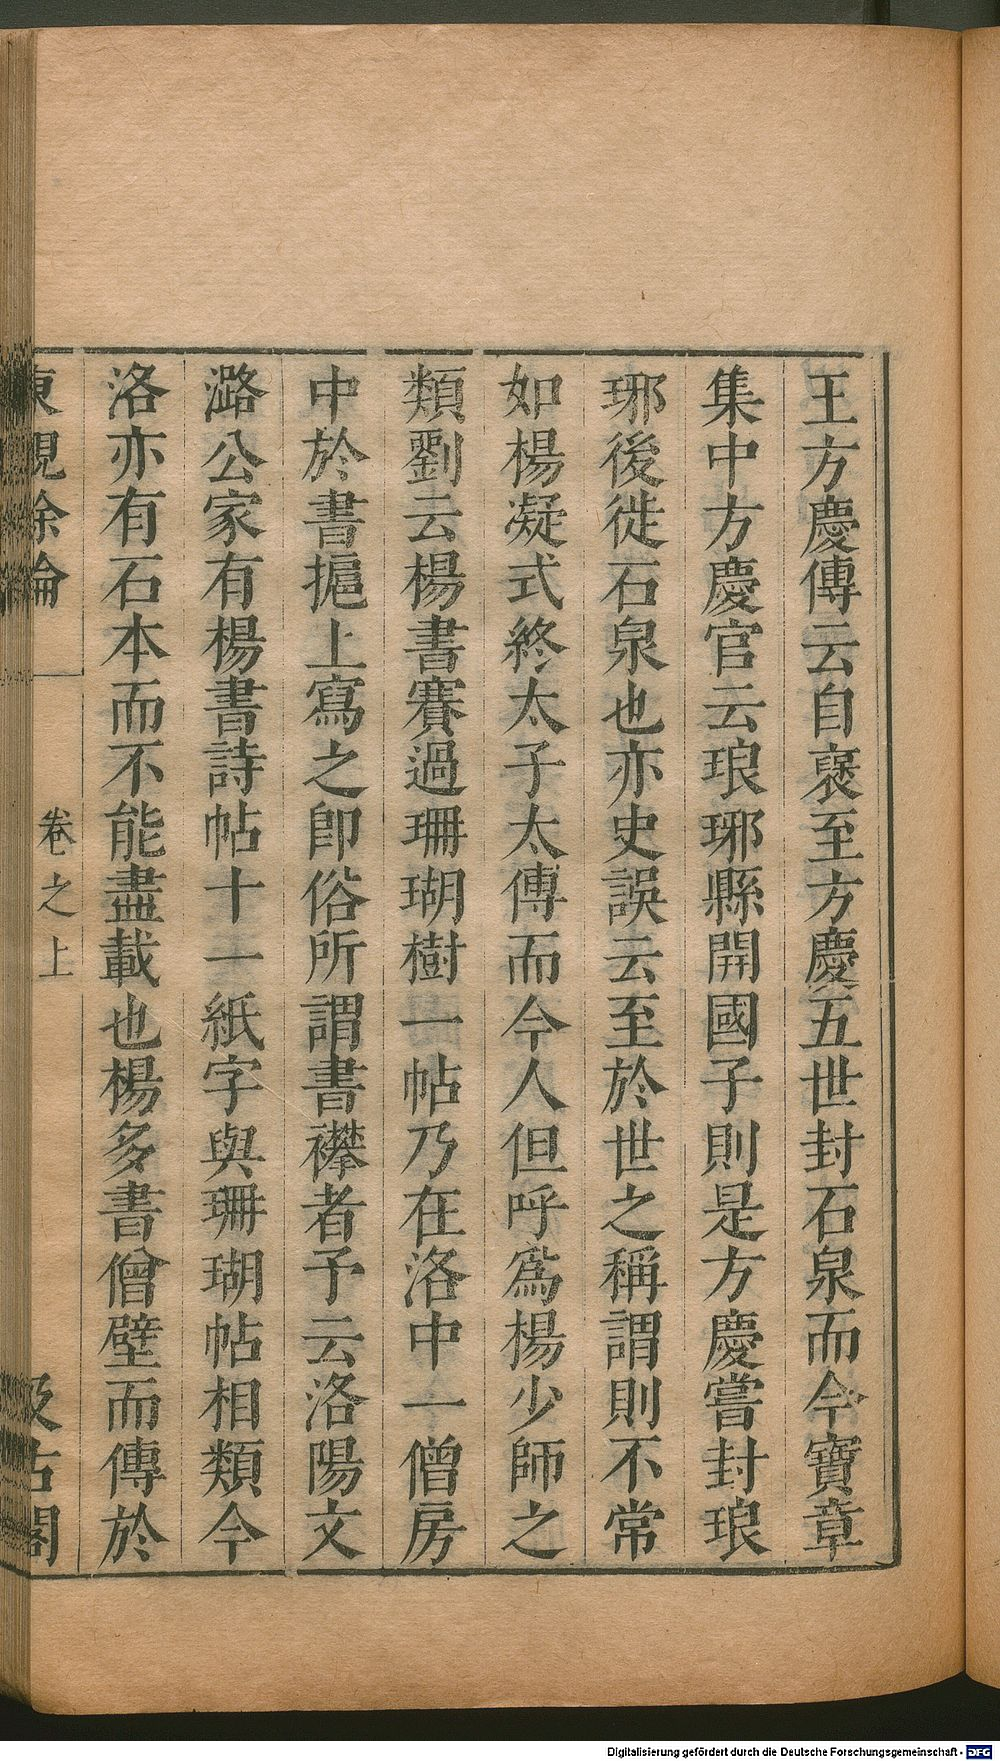 王方慶傳云自褒至方慶五世封石泉而今寶章
集中方慶官云琅琊縣開國子則是方慶嘗封琅
琊後徙石泉也亦史誤云至於世之稱謂則不常
如楊凝式終太子太傅而今人但呼爲楊少師之
類劉云楊書賽過珊瑚樹一帖乃在洛中一僧房
中於書摭上寫之即俗所謂書襻者予云洛陽文
潞公家有楊書詩帖十一紙字與珊瑚帖相類今
洛亦有石本而不能盡載也楊多書僧壁而傳於
東觀餘論
卷之上
汲古閣
Digitalisierung gefördert durch die Deutsche Forschungsgemeinschaft - DFG